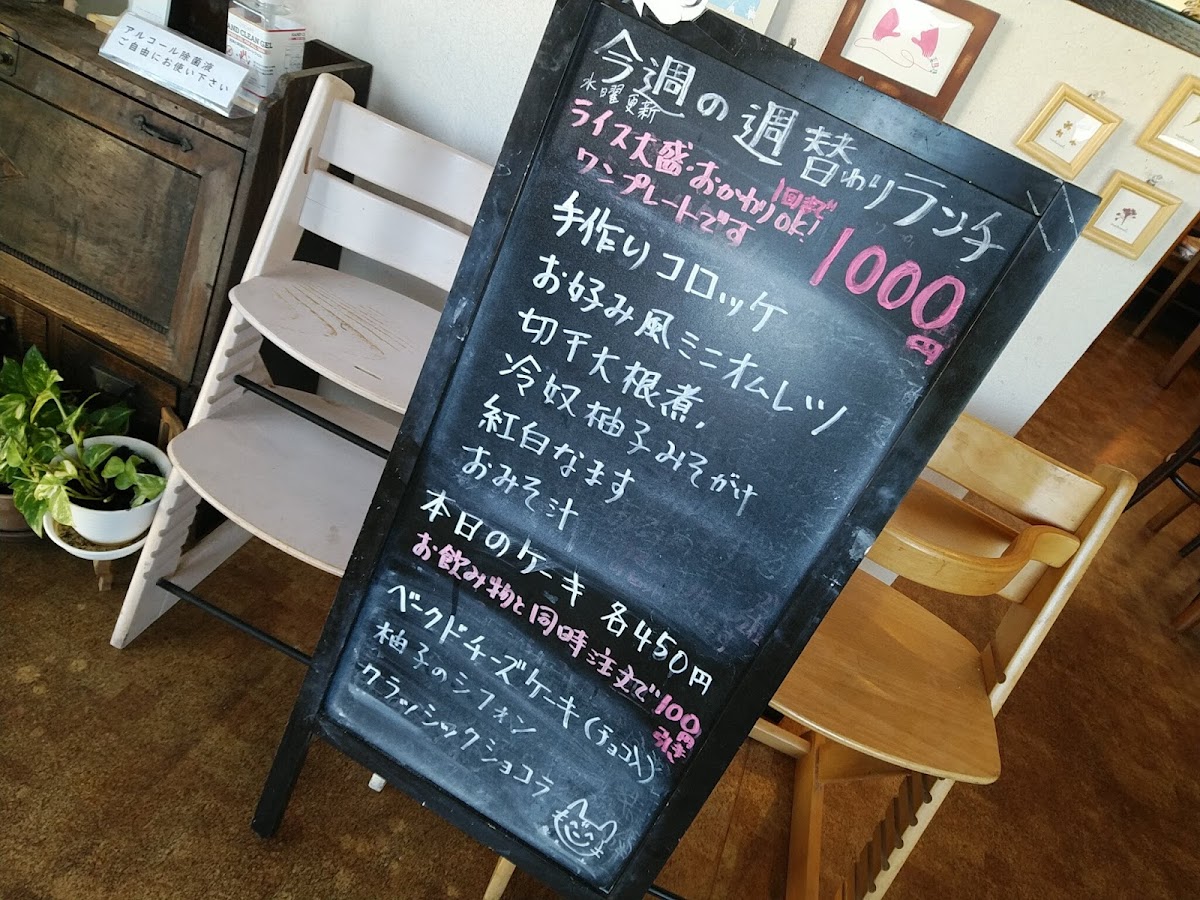 アルコール除菌液
ご自由にお使い下さい
HAND CLEAN GEL
今週の週替わりランチ
水曜更新
ライス大盛・おかわりOK!
1回まで
ワンプレートです
1000円
手作りコロッケ
お好み風ミニオムレツ
切干大根煮,
冷奴柚子みそがけ
紅白なます
おみそ汁
本日のケーキ 各450円
お飲み物と同時注文で100円引き
ベークドチーズケーキ(チョコ入)
柚子のシフォン
クラッシックショコラ